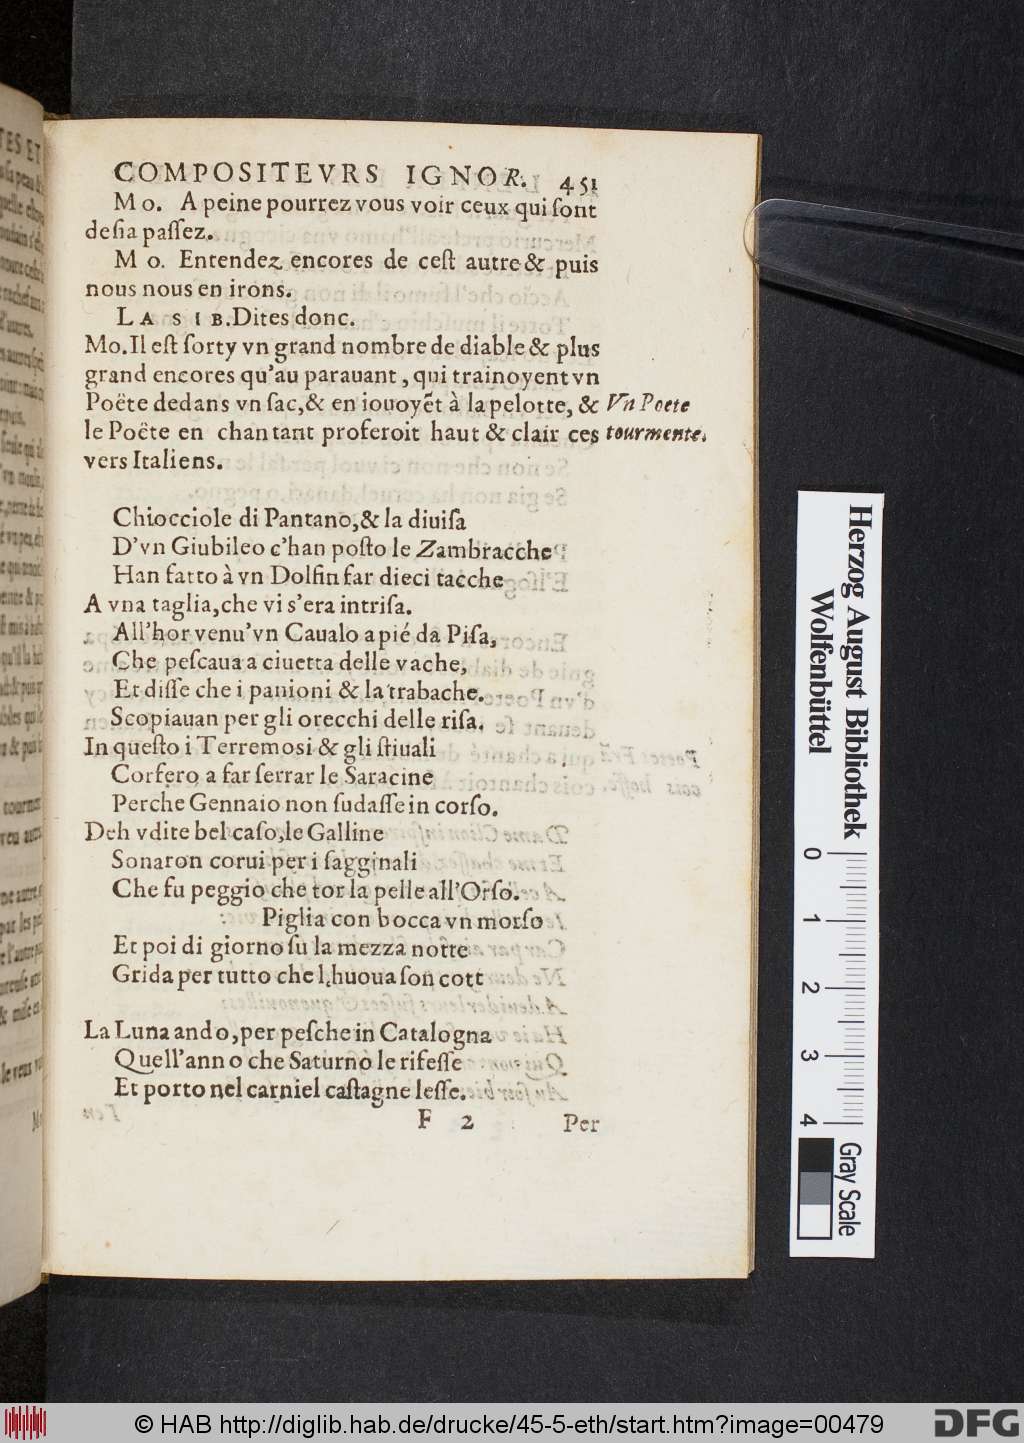 COMPOSITEVRS IGNOR. 451
Mo. A peine pourrez vous voir ceux qui ſont
deſia paſſez.
Mo. Entendez encores de ceſt autre & puis
nous nous en irons.
LA SIB. Dites donc.
Mo. Il eſt ſorty vn grand nombre de diable & plus
grand encores qu'au parauant, qui trainoyent vn
Poëte dedans vn ſac, & en iouoyẽt à la pelotte, &
le Poëte en chantant proferoit haut & clair ces
vers Italiens.
Vn Poete
tourmente.
Chiocciole di Pantano, & la diuiſa
D'vn Giubileo c'han poſto le Zambracche
Han fatto à vn Dolfin far dieci tacche
A vna taglia, che vi s'era intriſa.
All'hor venu'vn Caualo a pié da Piſa,
Che peſcaua a ciuetta delle vache,
Et diſſe che i panioni & la trabache.
Scopiauan per gli orecchi delle riſa.
In queſto i Terremosi & gli ſtiuali
Corſero a far ſerrar le Saracine
Perche Gennaio non ſudaſſe in corſo.
Deh vdite bel caſo, le Galline
Sonaron corui per i ſagginali
Che fu peggio che tor la pelle all'Orſo.
Piglia con bocca vn morſo
Et poi di giorno ſu la mezza notte
Grida per tutto che l'huoua ſon cott
La Luna ando, per peſche in Catalogna
Quell'anno che Saturno le rifeſſe
Et porto nel carniel caſtagne leſſe.
F 2 Per
Herzog August Bibliothek
Wolfenbüttel
0 1 2 3 4
Gray Scale
© HAB http://diglib.hab.de/drucke/45-5-eth/start.htm?image=00479
DFG